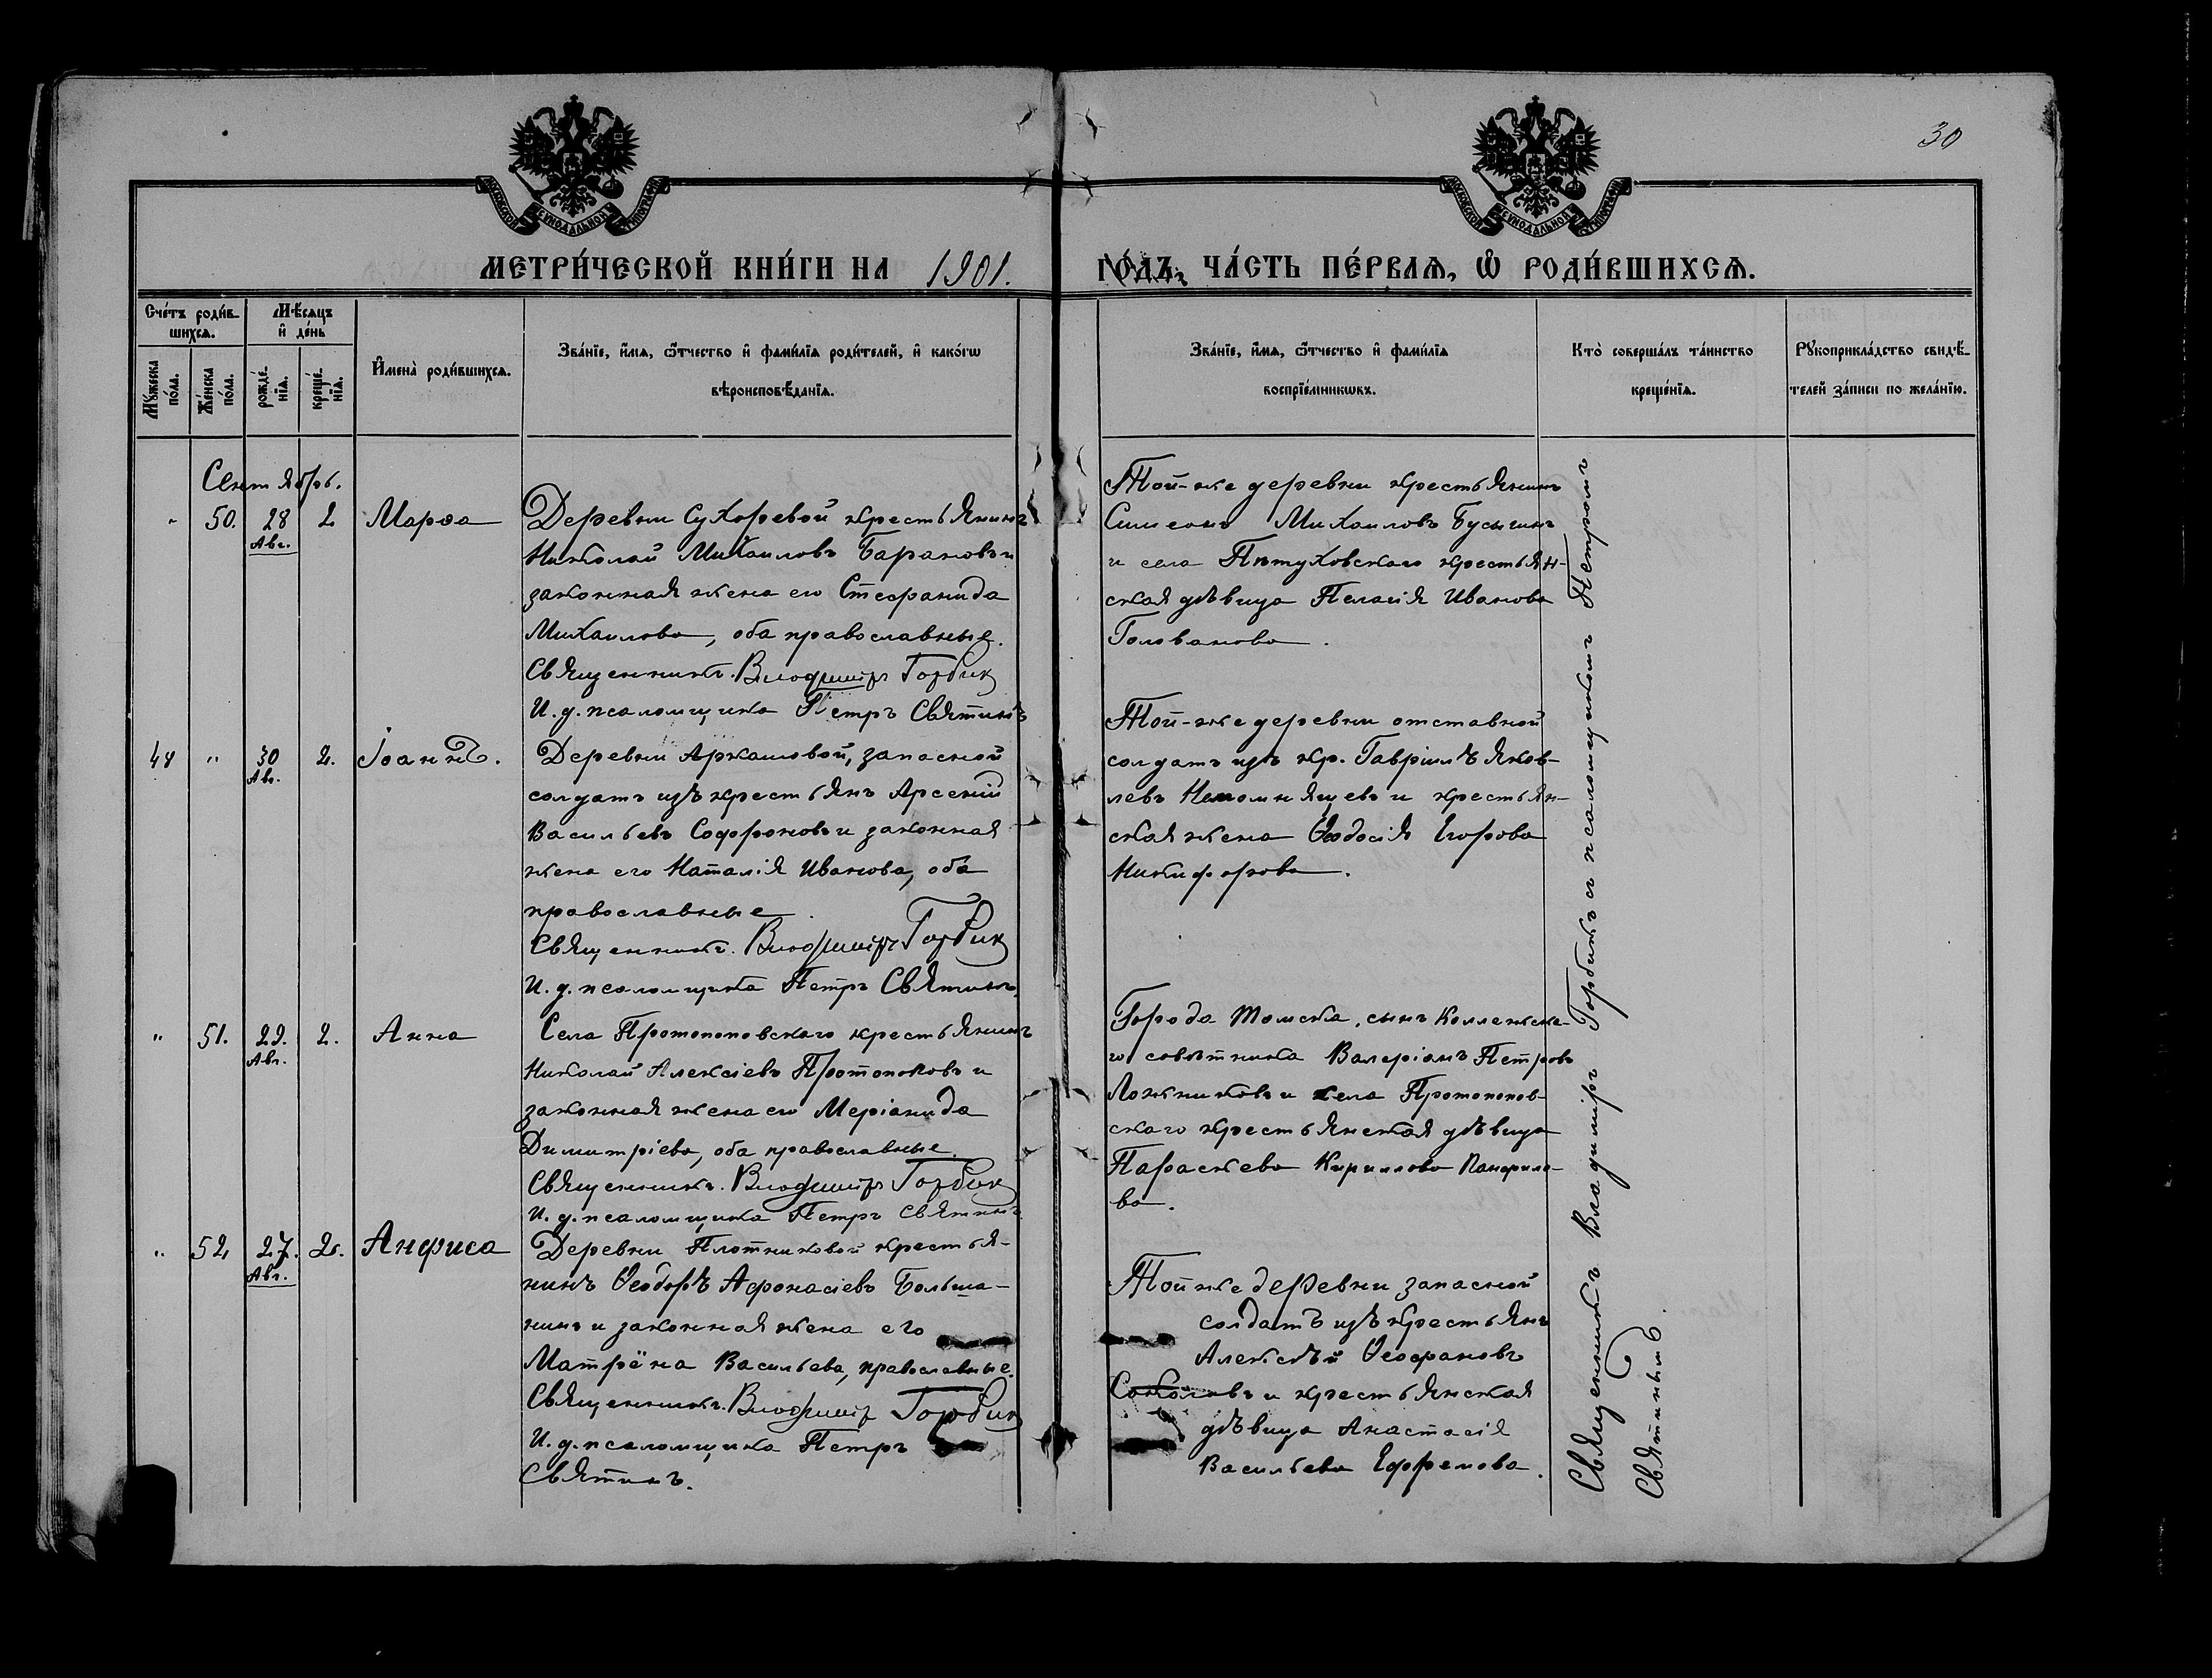 30
МОСКОВСКОЙ СѴНОДАЛЬНОЙ ТИПОГРАФІИ
МОСКОВСКОЙ СѴНОДАЛЬНОЙ ТИПОГРАФІИ
МЕТРИ́ЧЕСКОЙ КНИ́ГИ НА 1901.
ГО́ДЪ, ЧА́СТЬ ПЕ́РВАѦ, Ѽ РОДИ́ВШИХСѦ.
Сче́тъ роди́в-
шихсѧ.
Мꙋ́жеска по́ла.
Же́нска по́ла.
Мѣ́сѧцъ
и҆ де́нь
рожде́-
нїѧ.
креще́-
нїѧ.
И҆мена̀ роди́вшихсѧ.
Зва́нїе, и҆́мѧ, ѻ҆́тчество и҆ фами́лїѧ роди́телей, и҆ како́гѡ
вѣроисповѣ́данїѧ.
Зва́нїе, и҆́мѧ, ѻ҆́тчество и҆ фами́лїѧ
воспрїе́мникѡвъ.
Кто̀ соверша́лъ та́инство
креще́нїѧ.
Рꙋкоприкла́дство свидѣ́-
телей за́писи по жела́нїю.
Сентябрь.
" 50. 28 Авг. 2 Марѳа
Деревни Сухоревой крестьянинъ
Николай Михаиловъ Барановъ и
законная жена его Стефанида
Михаилова, оба православные.
Священникъ. Владиміръ Горбик
И. д. псаломщика Петръ Святинъ
Той-же деревни крестьянинъ
Симеонъ Михаиловъ Бусыгинъ
и села Пѣтуховскаго крестьян-
ская дѣвица Пелагія Иванова
Голованова.
48 " 30 Авг. 2. Іоаннъ.
Деревни Аркашовой, запасной
солдатъ изъ крестьянъ Арсеній
Васильевъ Софроновъ и законная
жена его Наталія Иванова, оба
православные.
Священникъ. Владиміръ Горбик
И. д. псаломщика Петръ Святинъ.
Той-же деревни отставной
солдатъ изъ кр. Гавріилъ Яков-
левъ Непомнящевъ и крестьян-
ская жена Ѳеодосія Егорова
Никифорова.
" 51. 29. Авг. 2. Анна
Села Протопоповскаго крестьянинъ
Николай Алексіевъ Протопоповъ и
законная жена его Меріанида
Димитріева, оба православные.
Священникъ. Владиміръ Горбик
И. д. псаломщика Петръ Святинъ
Города Томска, сынъ Коллежска-
го совѣтника Валеріанъ Петровъ
Ложниковъ и села Протопопов-
скаго крестьянская дѣвица
Параскева Кириллова Панфило-
ва.
" 52 27. Авг. 2. Анфиса
Деревни Плотниковой крестья-
нинъ Ѳеодоръ Афонасіевъ Больша-
нинъ и законная жена его
Матрёна Васильева, православные.
Священникъ. Владиміръ Горбик
И. д. псаломщика Петръ
Святинъ.
Той же деревни запасной
солдатъ изъ крестьянъ
Алексѣй Ѳеофановъ
Соколовъ и крестьянская
дѣвица Анастасія
Васильева Ефремова.
Священникъ Владиміръ Горбикъ съ псаломщикомъ Петромъ
Святинымъ.